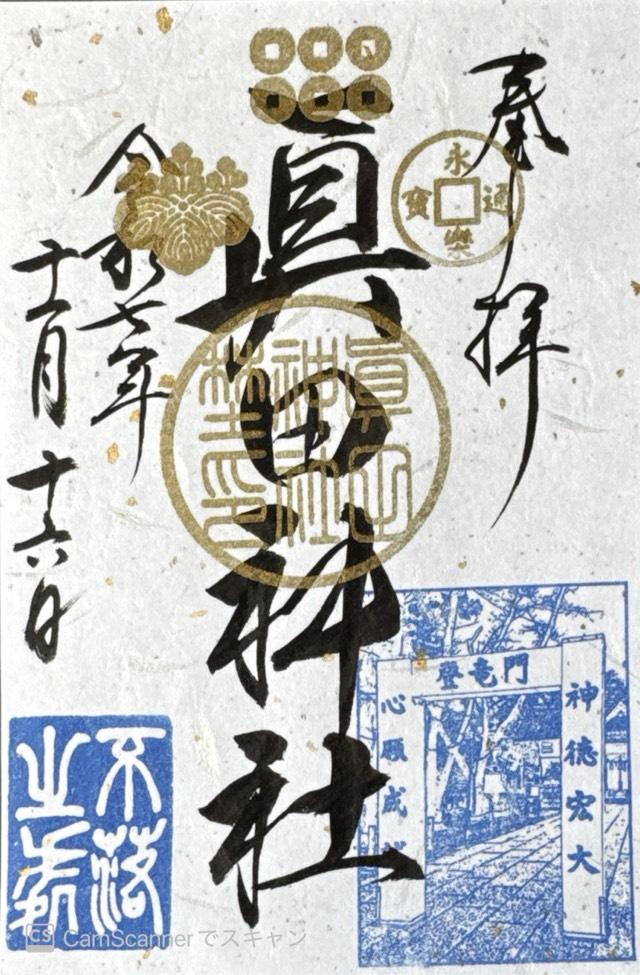 奉拝
永樂通寶
眞田神社
眞田神社之印
令和七年
十一月十六日
登竜門
神徳宏大
心願成
不落
之
CamScannerでスキャン